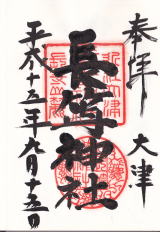 奉拝
大津
長等神社
平成十五年九月十五日